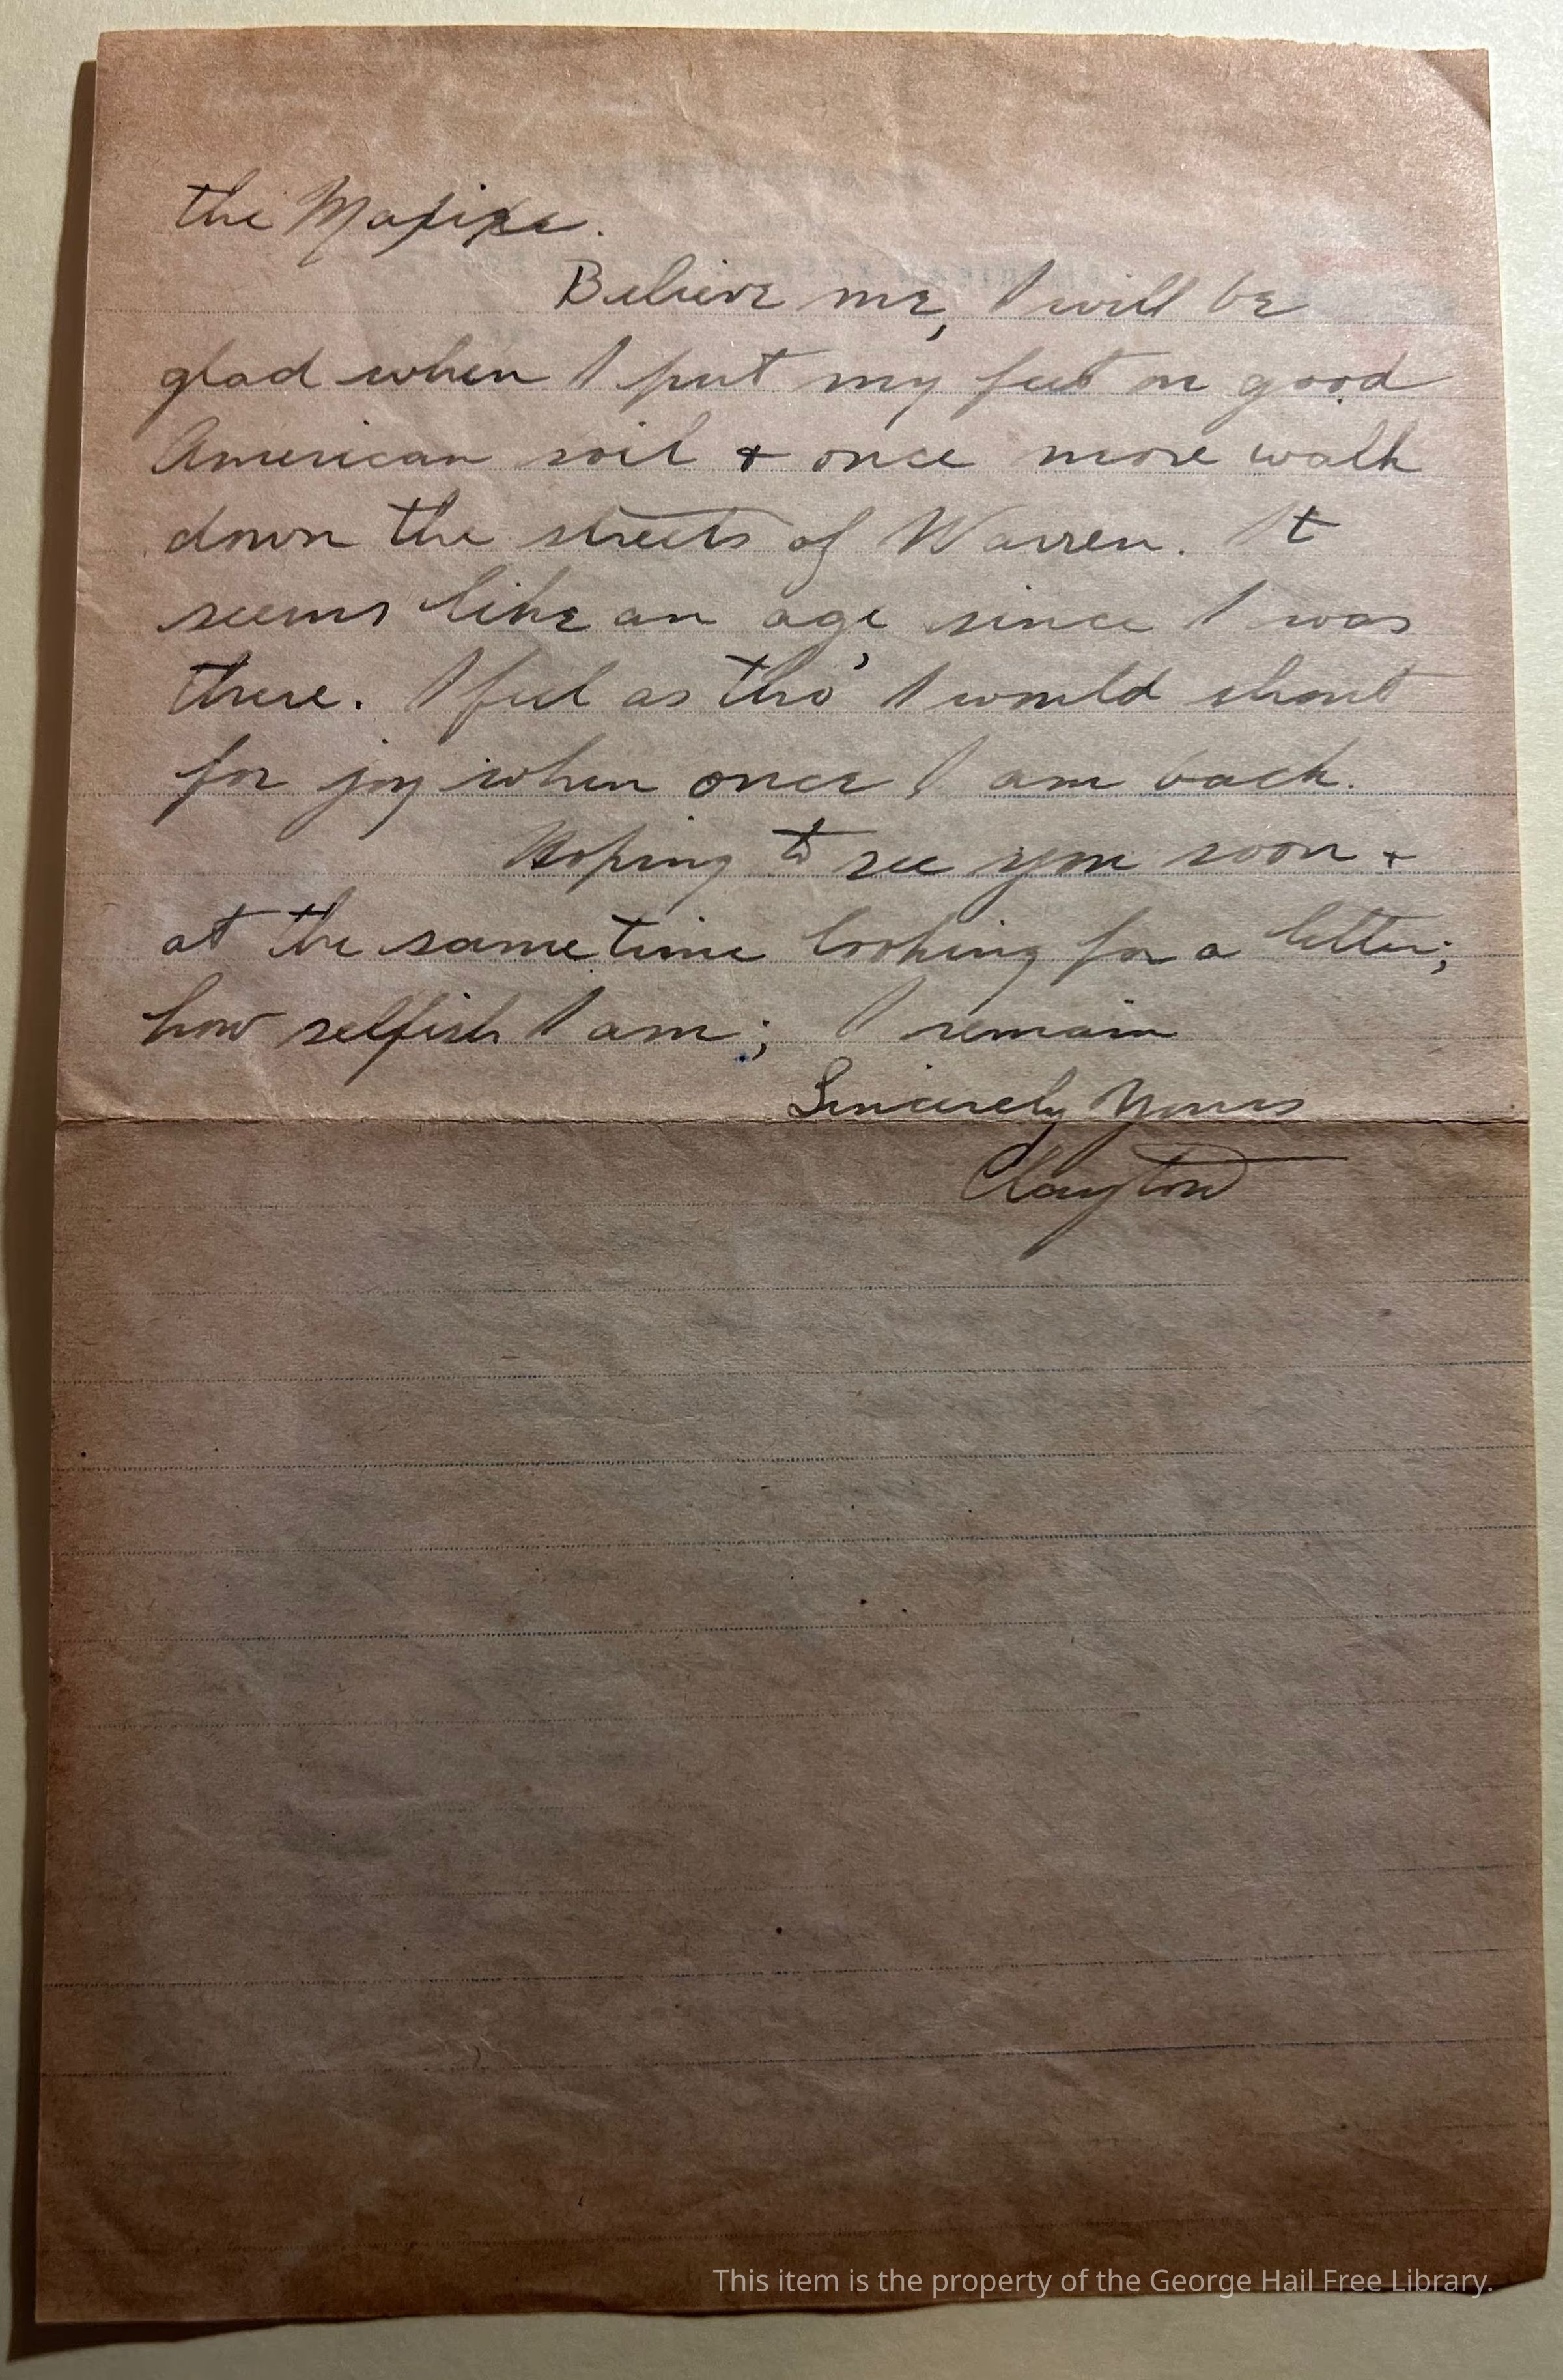 the Maxixe.
Believe me, I will be
glad when I put my feet on good
American soil + once more walk
down the streets of Warren. It
seems like an age, since I was
there. I feel as tho' I would shout
for joy when once I am back.
Hoping to see you soon +
at the same time looking for a letter;
how selfish I am; I remain
Sincerely Yours
Clayton
This item is the property of the George Hail Free Library.